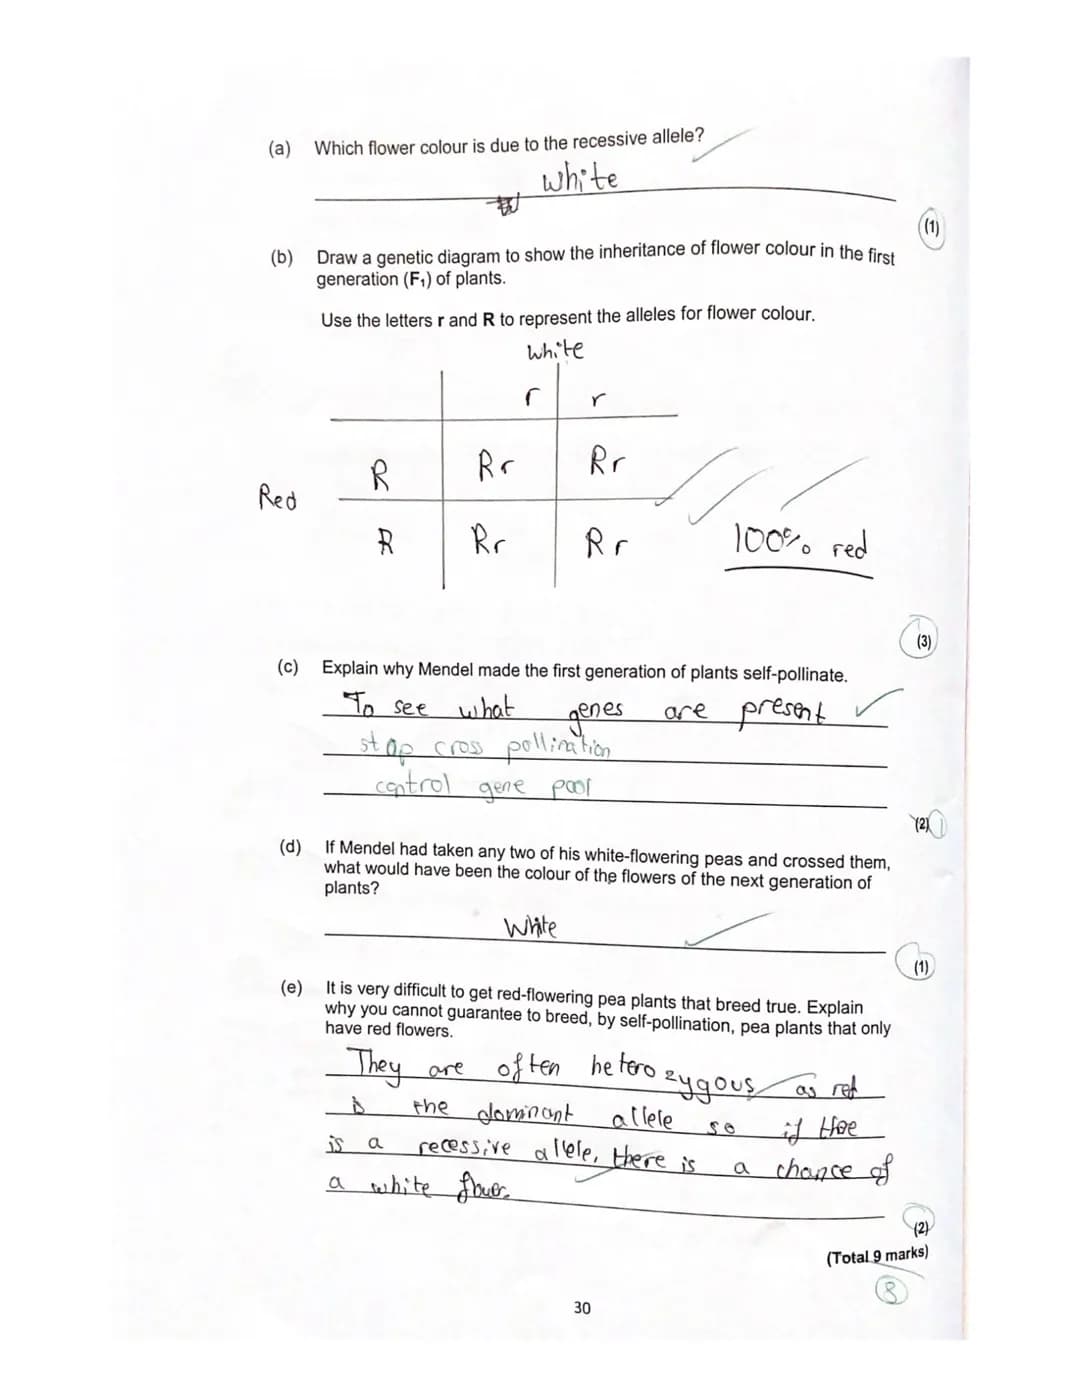 (a) Which flower colour is due to the recessive allele?
white
(1)
(b) Draw a genetic diagram to show the inheritance of flower colour in the first
generation (F₁) of plants.
Use the letters r and R to represent the alleles for flower colour.
white
r r
R Rr Rr
Red
R Rr Rr 100% red
(3)
(c) Explain why Mendel made the first generation of plants self-pollinate.
To see what genes are present
stop cross pollination
control gene pool
(2) 1
(d) If Mendel had taken any two of his white-flowering peas and crossed them,
what would have been the colour of the flowers of the next generation of
plants?
White
(1)
(e) It is very difficult to get red-flowering pea plants that breed true. Explain
why you cannot guarantee to breed, by self-pollination, pea plants that only
have red flowers.
They are often heterozygous as
the dominant allele so if
is a recessive allele, there is a chance of
a white flower.
(2)
(Total 9 marks)
8
30